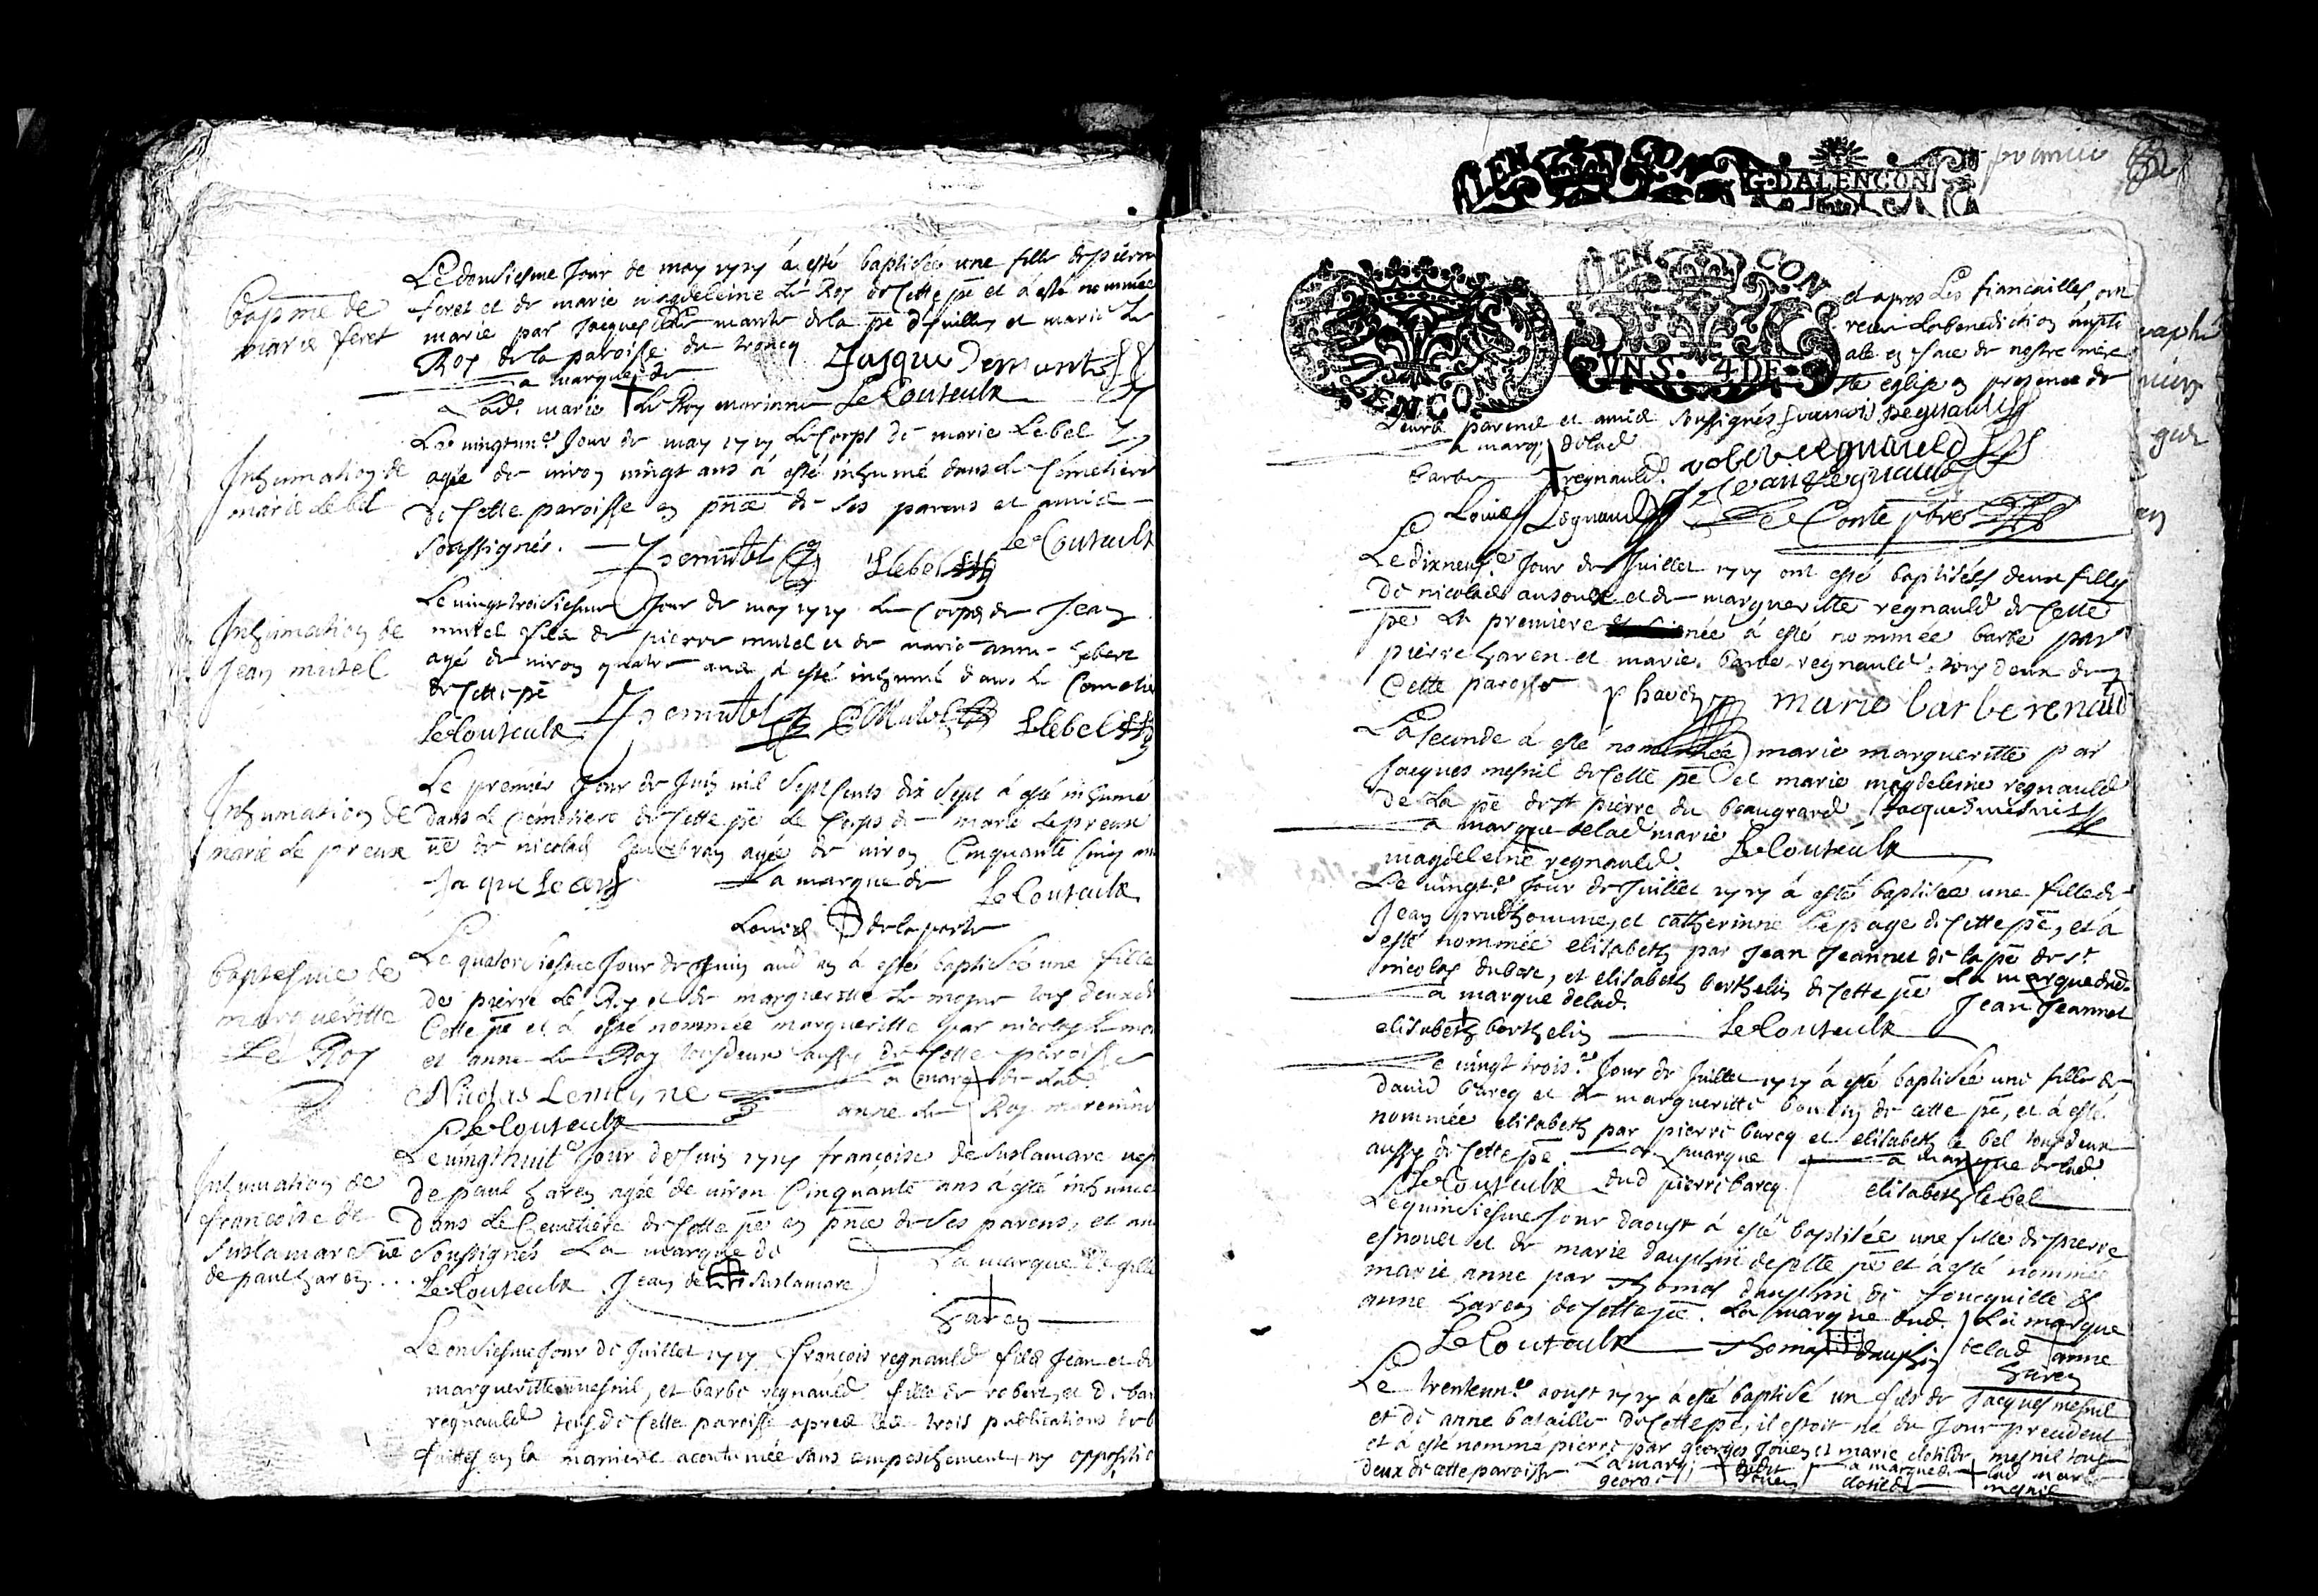 Bapme de
marie feret
Le douziesme Jour de may 1717 á esté baptisée une fille de pierre
feret et de marie magdeleine Le Roy de Cette pe et á esté nommée
marie par Jacques de la pe et marie Le
Roy de la paroisse du troncq Jasque Demante
La marque de
Lade marie Le Roy marinne LeCouteulx
Inhumation de
marie Lebel
Le vingtune Jour de may 1717 Le Corps de marie Lebel
agée de viron vingt ans á esté inhumé dans Le Cémetiere
de Cette paroisse en pnce de ses parens et amis
soussignés. Lebel LeCouteulx
Inhumation de
Jean mutel
Le vingt troisiesme Jour de may 1717 Le Corps de Jean
mutel fils de pierre mutel et de marie anne hebert
agé de viron quatre ans á esté inhumé dans Le Cemetie
de Cette pe
LeCouteulx Mutel Lebel
Inhumation de
marie Le preux
Le premier Jour de Juin mil Sept Cents dix Sept á esté inhumé
dans Le Cémetiere de Cette pe Le Corps de marie Lepreux
ve de nicolas agée de viron Cinquante Cinq an
La marque de LeCouteulx
Louis de la porte
baptesme de
margueritte
Le Roy
Le quatorsiesme Jour de Juin aud an á esté baptisée une fille
de pierre Le Roy et de margueritte Le moyne tous deux de
Cette pe et á esté nommée margueritte par nicolas Le mo
et anne Le Roy tous deux aussy de Cette paroisse
Nicolas Lemoyne La marq de Lad
LeCouteulx anne Le Roy mareinne
Inhumation de
francoise de
Suslamare ve
de paul haren
Le vingthuite Jour de Juin 1717 françoise de Suslamare ve
de paul haren agée de viron Cinquante ans á esté inhumée
dans Le Cemetiére de Cette pe en pnce de ses parens, et am
soussignés La marque de La marque de gille
LeCouteulx Jean de Suslamare
haren
Le onsiesme Jour de Juillet 1717 francois regnauld fils Jean et de
margueritte mesnil, et barbe regnauld fille de robert, et de bar
regnauld tous de Cette paroisse apres les trois publications de b
faittes en la maniere acoutumée sans empeschement, ny oppositio
G·DALENCON
ALENCON
VN S. 4 DE.
et apres Les fiancailles, ont
receu Labenediction nupti
ale en face de nostre mére
Ste eglise en presence de
Leurs parens et amis soussignés francois Regnault
La marq delad
barbe regnauld. robert regnauld
Jean Regnault
Louis Regnauld Le Conte pbre
Le dixneufe Jour de Juillet 1717 ont esté baptisées deux filles
de nicolas ausoult et de margueritte regnauld de Cette
pe La premiere née á esté nommée barbe par
pierre haren et marie barbe regnauld tous deux de
Cette paroisse p haren marie barbe renaud
La seconde á esté nommée marie margueritte par
Jacques mesnil de Cette pe et marie magdeleine regnauld
de La pe de st pierre du beaugrard Jacques mesnil
La marque delad marie
magdeleine regnauld. LeCouteulx
Le vingte Jour de Juillet 1717 á esté baptisée une fille de
Jean prudhomme, et catherinne Lepage de Cette pe, et á
esté nommée elisabeth par Jean Jeannet de la pe de st
nicolas dubosc, et elisabeth berthelin de Cette pe La marque dud
La marque delad. Jean Jeannet
elisabeth berthelin LeCouteulx
Le vingt troise Jour de Juillet 1717 á esté baptisée une fille de
david barcq et de margueritte de cette pe, et á esté
nommée elisabeth par pierre barcq et elisabeth le bel tous deux
aussy de Cette pe. La marque La marque de lad
LeCouteulx dud pierre barcq elisabeth lebel
Le quinsiesme Jour daoust á esté baptisée une fille de pierre
esnoult et de marie dauphin de Cette pe et á esté nommée
marie anne par Thomas dauphin de foucquille et
anne haren de Cette pe. La marque dud. La marque
LeCouteulx Thomas dauphin delad anne
haren
Le trenteune aoust 1717 á esté baptisé un fils de Jacques mesnil
et de anne bataille de Cette pe, il estoit né du Jour precedent
et á esté nommé pierre par georges Jouen et marie clotilde mesnil tous
deux de cette paroisse La marq dudit La marque de lad marie
georges Jouen clotilde mesnil